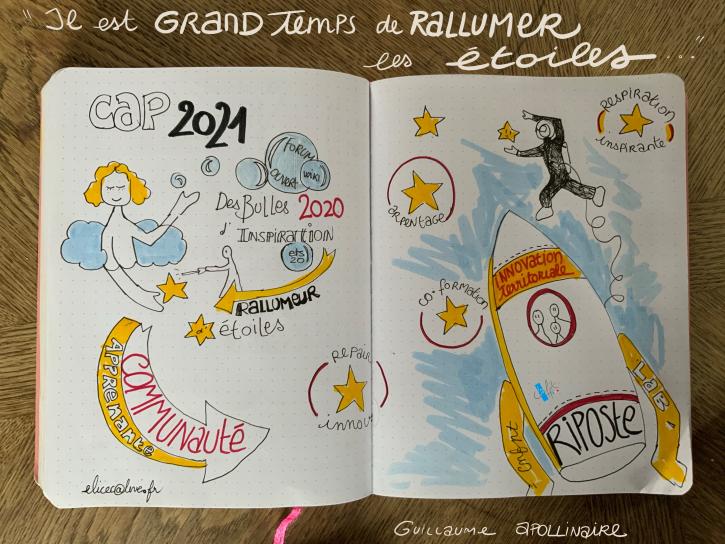 "Il est GRAND Temps de RALLUMER
les étoiles..."
CAP 2021
FORUM
ouvert
wiki
Des Bulles 2020
d'INSPIRATION
ets
20
RALLUMEUR
d'étoiles
COMMUNAUTÉ
APPRENANTE
elicec@live.fr
RESPIRATION
inspirante
arpentage
co-formation
repau
innov
INNOVATION
territoriale
RIPOSTE
LAB
Guillaume APOLLINAIRE